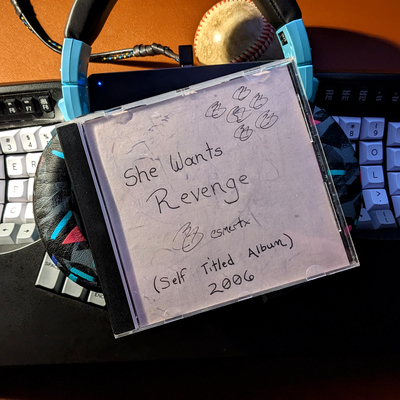 She Wants
Revenge
csmertx
(Self Titled Album)
2006